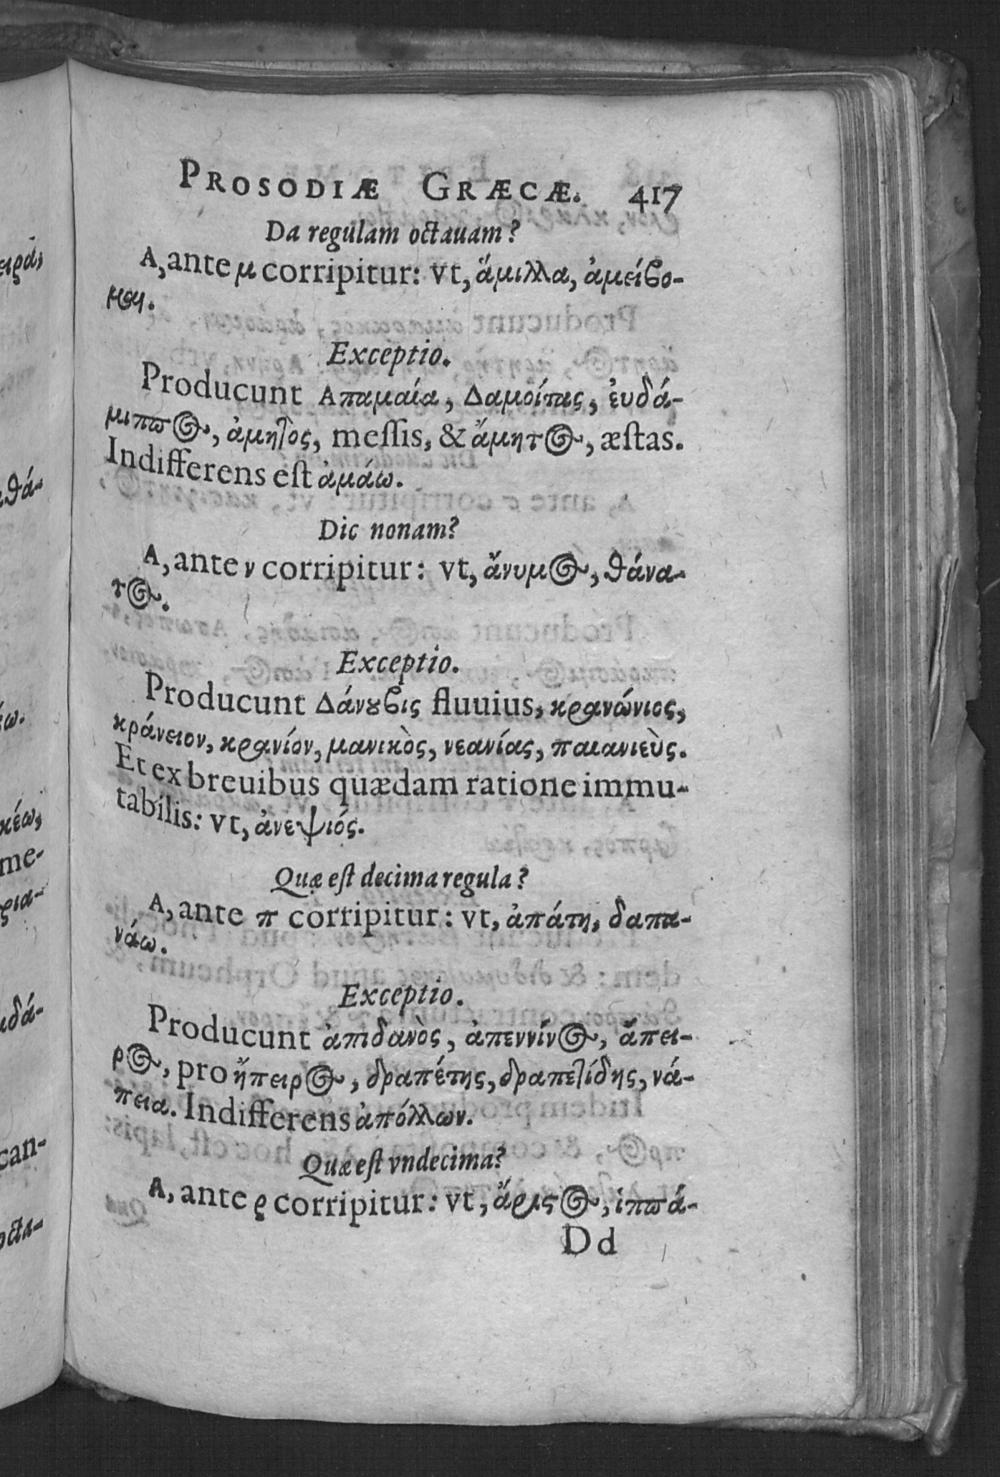 PROSODIÆ GRÆCÆ. 417
Da regulam octauam?
A, ante μ corripitur: vt, ἅμιλλα, ἀμείβο-
μαι.
Exceptio.
Producunt Απαμαία, Δαμοίτας, ἐυδά-
μιππος, ἀμητος, messis, & ἄμητος, æstas.
Indifferens est ἀμάω.
Dic nonam?
A, ante ν corripitur: vt, ἄνυμος, θάνα-
τος.
Exceptio.
Producunt Δάνουβις fluuius, κρανώνιος,
κράνειον, κρανίον, μανικὸς, νεανίας, παιανιεὺς.
Et ex breuibus quædam ratione immu-
tabilis: vt, ἀνεψιός.
Quæ est decima regula?
A, ante π corripitur: vt, ἀπάτη, δαπα-
νάω.
Exceptio.
Producunt ἀπιδανὸς, ἀπεννίνος, ἄπει-
ρος, pro ἤπειρος, δραπέτης, δραπετίδης, νά-
πεια. Indifferens ἀπόλλων.
Quæ est vndecima?
A, ante ρ corripitur: vt, ἄριστος, ἱππά-
Dd
ειρά,
θά-
άω.
κέω,
me-
ρια-
ιδά-
can-
octa-